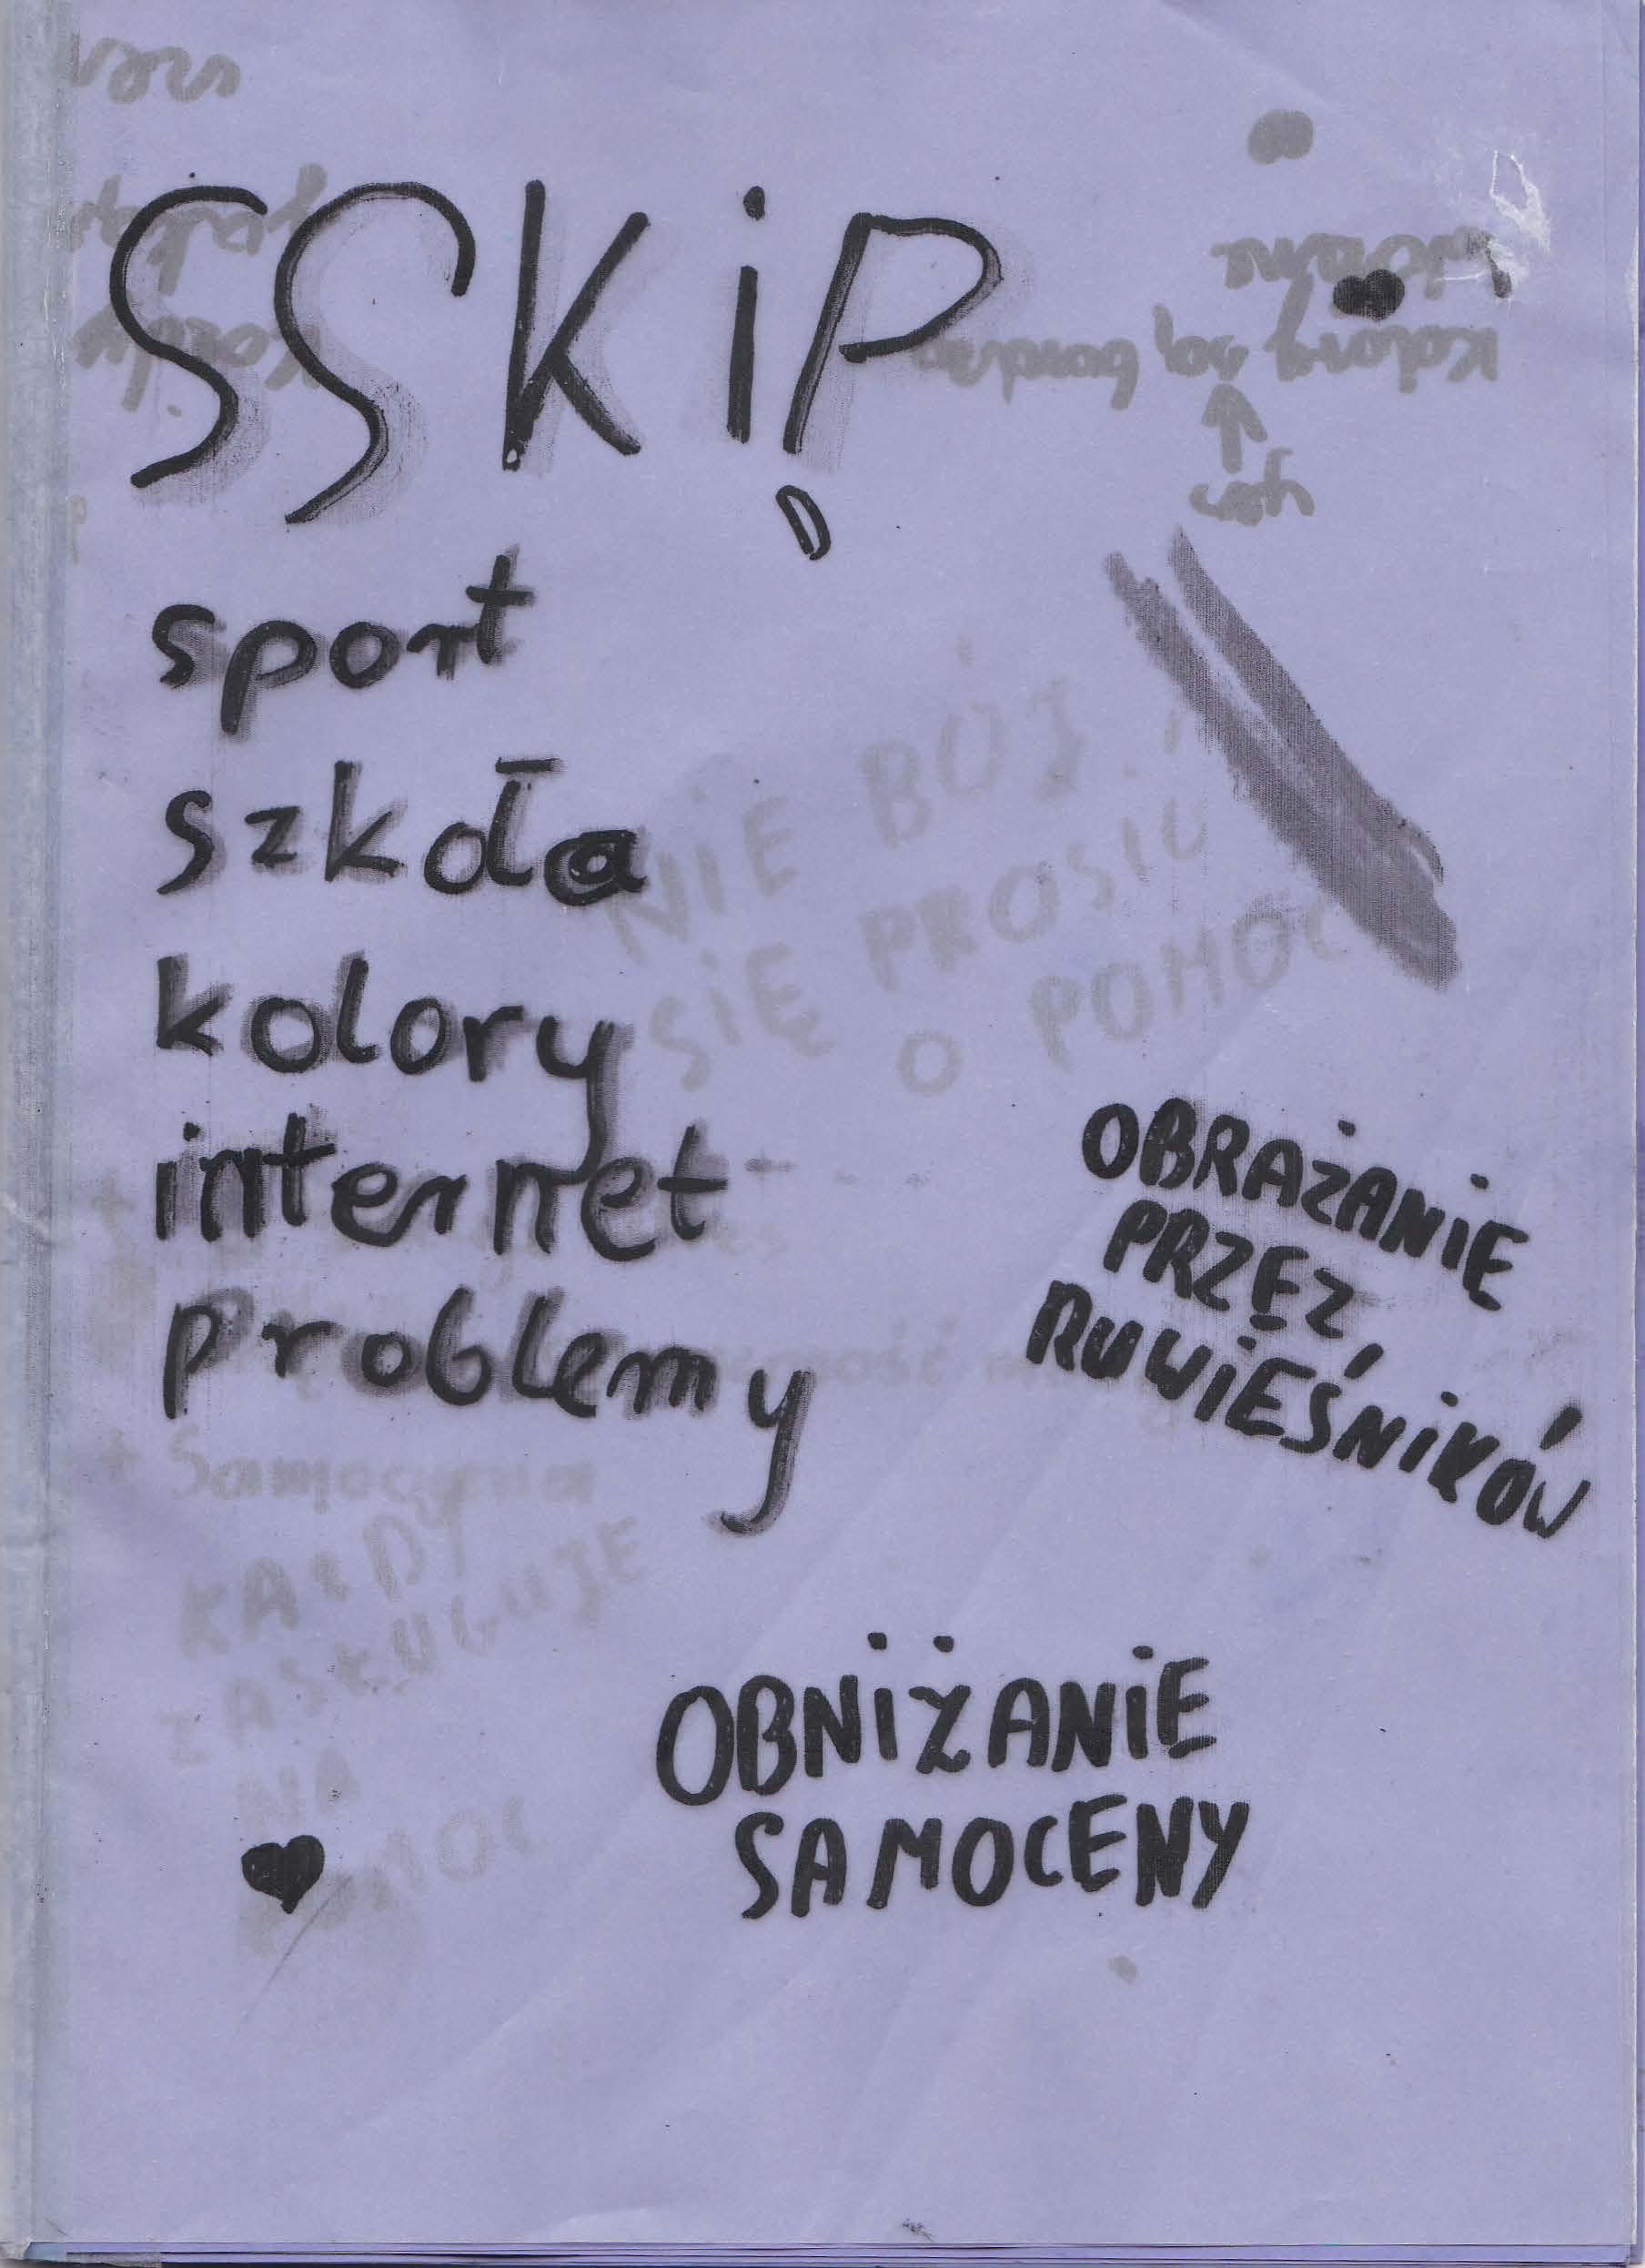 SSKiP
sport
szkoła
kolory
internet
problemy
NIE BÓJ
SIĘ PROSIĆ
O POMOC
OBRAŻANIE
PRZEZ
RUWIEŚNIKÓW
Samoocena
KAŻDY
ZASŁUGUJE
NA
POMOC
OBNIŻANIE
SAMOCENY
Kolory są bardzo